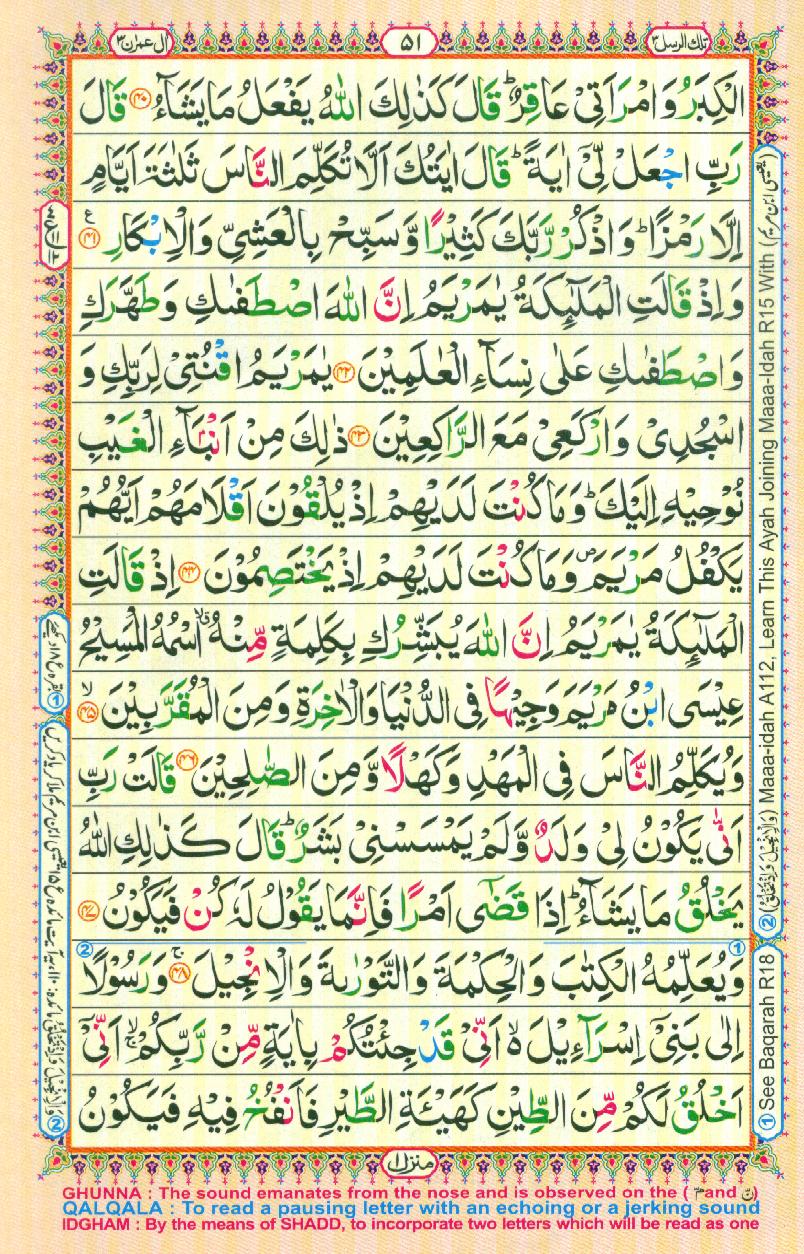 تلك الرسل ٣
٥١
اٰل عمرٰن ٣
الْكِبَرُ وَامْرَاَتِیْ عَاقِرٌ ؕ قَالَ كَذٰلِكَ اللّٰهُ یَفْعَلُ مَا یَشَآءُ ﴿۴۰﴾ قَالَ
رَبِّ اجْعَلْ لِّیْۤ اٰیَةً ؕ قَالَ اٰیَتُكَ اَلَّا تُكَلِّمَ النَّاسَ ثَلٰثَةَ اَیَّامٍ
اِلَّا رَمْزًا ؕ وَاذْكُرْ رَّبَّكَ كَثِیْرًا وَّسَبِّحْ بِالْعَشِیِّ وَالْاِبْكَارِ ﴿۴۱﴾ ع
وَاِذْ قَالَتِ الْمَلٰٓئِكَةُ یٰمَرْیَمُ اِنَّ اللّٰهَ اصْطَفٰىكِ وَطَهَّرَكِ
وَاصْطَفٰىكِ عَلٰی نِسَآءِ الْعٰلَمِیْنَ ﴿۴۲﴾ یٰمَرْیَمُ اقْنُتِیْ لِرَبِّكِ وَ
اسْجُدِیْ وَارْكَعِیْ مَعَ الرّٰكِعِیْنَ ﴿۴۳﴾ ذٰلِكَ مِنْ اَنْۢبَآءِ الْغَیْبِ
نُوْحِیْهِ اِلَیْكَ ؕ وَمَا كُنْتَ لَدَیْهِمْ اِذْ یُلْقُوْنَ اَقْلَامَهُمْ اَیُّهُمْ
یَكْفُلُ مَرْیَمَ ۪ وَمَا كُنْتَ لَدَیْهِمْ اِذْ یَخْتَصِمُوْنَ ﴿۴۴﴾ اِذْ قَالَتِ
الْمَلٰٓئِكَةُ یٰمَرْیَمُ اِنَّ اللّٰهَ یُبَشِّرُكِ بِكَلِمَةٍ مِّنْهُ ۖۗ اسْمُهُ الْمَسِیْحُ
عِیْسَی ابْنُ مَرْیَمَ وَجِیْهًا فِی الدُّنْیَا وَالْاٰخِرَةِ وَمِنَ الْمُقَرَّبِیْنَ ﴿۴۵﴾ ۙ
وَیُكَلِّمُ النَّاسَ فِی الْمَهْدِ وَكَهْلًا وَّمِنَ الصّٰلِحِیْنَ ﴿۴۶﴾ قَالَتْ رَبِّ
اَنّٰی یَكُوْنُ لِیْ وَلَدٌ وَّلَمْ یَمْسَسْنِیْ بَشَرٌ ؕ قَالَ كَذٰلِكِ اللّٰهُ
یَخْلُقُ مَا یَشَآءُ ؕ اِذَا قَضٰۤی اَمْرًا فَاِنَّمَا یَقُوْلُ لَهٗ كُنْ فَیَكُوْنُ ﴿۴۷﴾
وَیُعَلِّمُهُ الْكِتٰبَ وَالْحِكْمَةَ وَالتَّوْرٰىةَ وَالْاِنْجِیْلَ ﴿۴۸﴾ ۚ وَرَسُوْلًا
اِلٰی بَنِیْۤ اِسْرَآءِیْلَ ۙ۬ اَنِّیْ قَدْ جِئْتُكُمْ بِاٰیَةٍ مِّنْ رَّبِّكُمْ ۙ اَنِّیْۤ
اَخْلُقُ لَكُمْ مِّنَ الطِّیْنِ كَهَیْـَٔةِ الطَّیْرِ فَاَنْفُخُ فِیْهِ فَیَكُوْنُ
منزل ١
① See Baqarah R18
② (وَالْاِنْجِیْلَ وَاِذْ تَخْلُقُ) Maaa-idah A112, Learn This Ayah Joining Maaa-Idah R15 With (یعیسی ابن مریم)
GHUNNA : The sound emanates from the nose and is observed on the ( مّ and نّ )
QALQALA : To read a pausing letter with an echoing or a jerking sound
IDGHAM : By the means of SHADD, to incorporate two letters which will be read as one